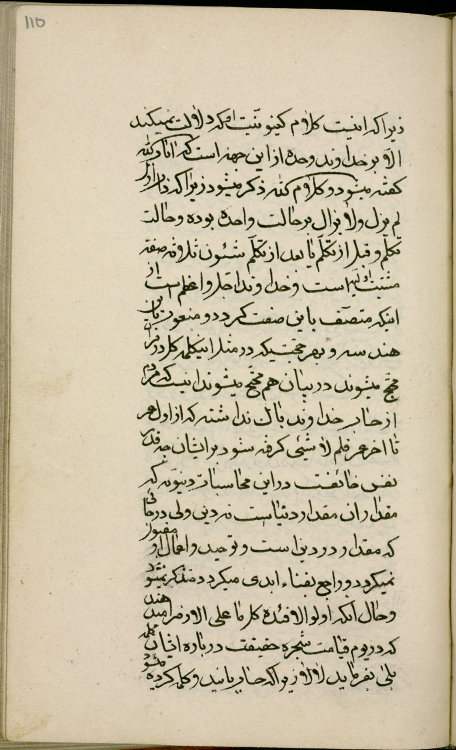 110
زیرا که اینست کلام کینونیت او که دلالت نمیکند
الا بر خداوند وحده از این جهة است که اثار الله
گفته میشود و کلام الله ذکر میشود زیرا که
لم یزل و لا یزال بر حالت واحده بوده و حالت
تکلم و قبل از تکلم یا بعد از تکلم شئون صفة
مشیت است و خداوند اجل و اعظم است از
اینکه متصف باین صفت گردد و منعوت باین
هندسه و بهر حجتیکه در مثل اینکلمه کل در
محتج میشوند در بیان هم محتج میشوند اینست که مردم
از حساب خداوند باک نداشته که از اول عمر
تا اخر عمر قلم لا شیئی گرفته شود بر ایشان چه قدر
نفس خائفست در این محاسبات دنیویه که
مقدار ان مقدار دنیاست نه دین ولی در جائی
که مقدار در دین است و توحید و اعمال او مقبول
نمیگردد و راجع بفناء ابدی میگردد متذکر نمیشود
و حال آنکه اولو الافئده کل ما علی الارض هند
که در یوم قیامت شجره حقیقت درباره ایشان
بلی بفرماید لا لا زیرا که حساب و کلمه گردیده میشود